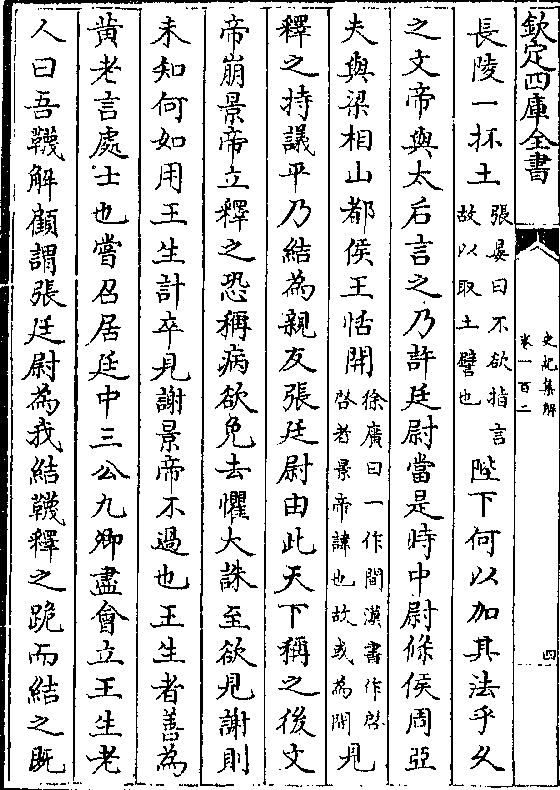 欽定四庫全書
史記集解
卷一百二
四
長陵一抔土張晏曰不欲指言故以取土譬也陛下何以加其法乎乆
之文帝與太后言之乃許廷尉當是時中尉條侯周亞
夫與梁相山都侯王恬開徐廣曰一作間漢書作啓啓者景帝諱也故或為開見
釋之持議平乃結為親友張廷尉由此天下稱之後文
帝崩景帝立釋之恐稱病欲免去懼大誅至欲見謝則
未知何如用王生計卒見謝景帝不過也王生者善為
黄老言處士也嘗召居廷中三公九卿盡會立王生老
人曰吾韤解顧謂張廷尉為我結韤釋之跪而結之既